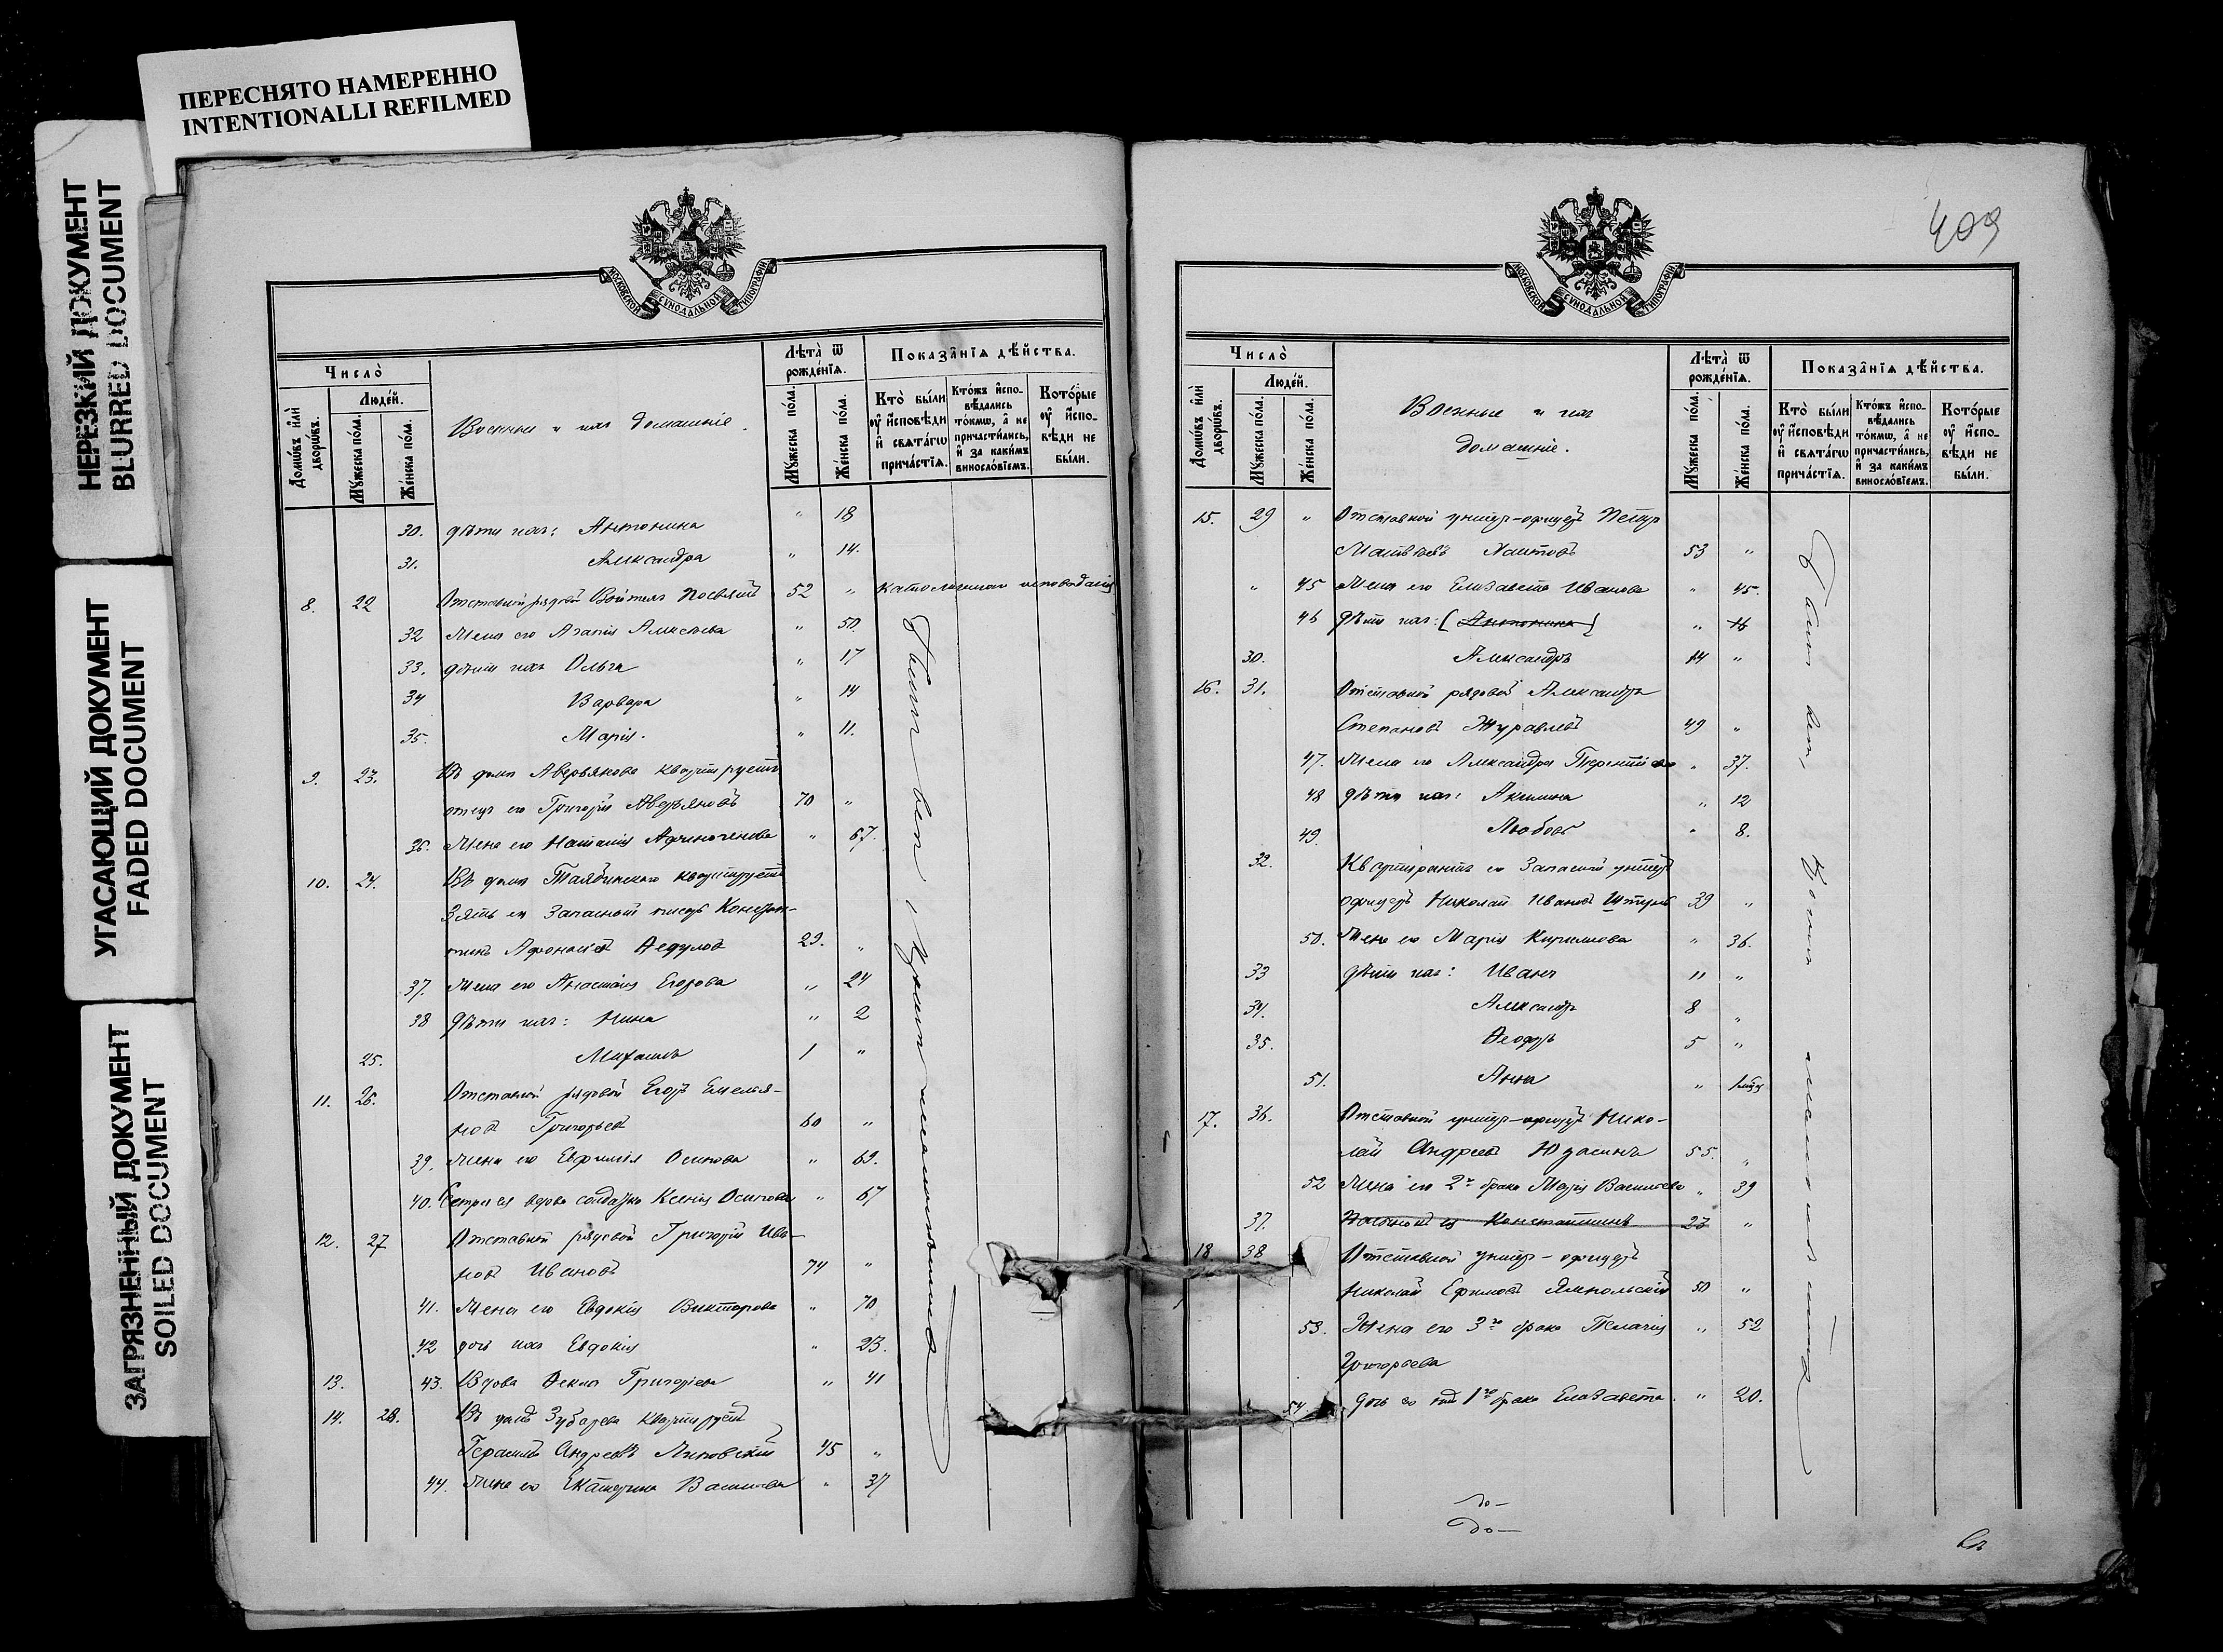 ПЕРЕСНЯТО НАМЕРЕННО
INTENTIONALLI REFILMED
НЕРЕЗКИЙ ДОКУМЕНТ
BLURRED DOCUMENT
УГАСАЮЩИЙ ДОКУМЕНТ
FADED DOCUMENT
ЗАГРЯЗНЕННЫЙ ДОКУМЕНТ
SOILED DOCUMENT
МОСКОВСКОЙ СУНОДАЛЬНОЙ ТИПОГРАФІИ
Число̀
Домѡ́въ и҆лѝ дворѡ́въ.
Люде́й.
Мꙋ́жеска по́ла.
Же́нска по́ла.
Военные и ихъ домашніе.
Лѣта̀ ѿ рожде́нїѧ.
Мꙋ́жеска по́ла.
Же́нска по́ла.
Показа̂нїѧ дѣ́йства.
Кто̀ бы́ли ᲂу҆ и҆сповѣди и҆ свѧта́гѡ прича́стїѧ.
Кто́жъ и҆спо-вѣдались то́кмѡ, а҆ не причасти́лись, и҆ за каки́мъ винословїемъ.
Кото́рые ᲂу҆ и҆спо-вѣди не бы́ли.
30. дѣти ихъ: Антонина " 18
31. Александра " 14.
8. 22 Отставной рядовой 52 "
32 Жена его Агапія Алексѣева " 50.
33. дѣти ихъ Ольга " 17
34 Варвара " 14
35. Марія. " 11.
9. 23. Въ домѣ Аверьянова квартируетъ
отецъ его Григорій Аверьяновъ 70 "
36. Жена его Наталія Афиногенова " 67.
10. 24. Въ домѣ квартируетъ
Зять его Запасный писарь Констан-
тинъ Афонасіевъ Ѳедуловъ 29. "
37. Жена его Анастасія Егорова " 24
38 дѣти ихъ: Нина " 2
25. Михаилъ 1 "
11. 26. Отставной рядовой Егоръ Емелья-
новъ Григорьевъ 60 "
39. Жена его Евфимія Осипова " 69.
40. Сестра ея вдова солдатка Ксенія Осипова " 67
12. 27 Отставной рядовой Григорій Ива-
новъ Ивановъ 74 "
41. Жена его Евдокія Викторова " 70
42 дочь ихъ Евдокія " 23.
13. 43. Вдова Ѳекла Григорьева " 41
14. 28. Въ домѣ Зубарева квартируетъ
Герасимъ Андреевъ Липовскій 45 "
44. Жена его Екатерина Васильева " 37
409
МОСКОВСКОЙ СУНОДАЛЬНОЙ ТИПОГРАФІИ
Число̀
Домѡ́въ и҆лѝ дворѡ́въ.
Люде́й.
Мꙋ́жеска по́ла.
Же́нска по́ла.
Военные и ихъ
домашніе.
Лѣта̀ ѿ рожде́нїѧ.
Мꙋ́жеска по́ла.
Же́нска по́ла.
Показа̂нїѧ дѣ́йства.
Кто̀ бы́ли ᲂу҆ и҆сповѣди и҆ свѧта́гѡ прича́стїѧ.
Кто́жъ и҆спо-вѣдались то́кмѡ, а҆ не причасти́лись, и҆ за каки́мъ винословїемъ.
Кото́рые ᲂу҆ и҆спо-вѣди не бы́ли.
15. 29 " Отставной унтеръ-офицеръ Петръ
Матвѣевъ 53 "
" 45 Жена его Елизавета Иванова " 45.
46 дѣти ихъ: (Антонина) " 16
30. Александръ 14 "
16. 31. Отставной рядовой Александръ
Степановъ Журавлевъ 49 "
47. Жена его Александра Терентьева " 37.
48 дѣти ихъ: Акилина " 12
49. Любовь " 8.
32. Квартирантъ его Запасной унтеръ
офицеръ Николай Ивановъ 39 "
50. Жена его Марія Кириллова " 36.
33 дѣти ихъ: Иванъ 11 "
34. Александръ 8 "
35. Ѳеодоръ 5 "
51. Анна "
17. 36. Отставной унтеръ-офицеръ Нико-
лай Андреевъ 55. "
52 Жена его 2го брака Марія Васильева " 39
37. Константинъ 23 "
18 38 Отставной унтеръ-офицеръ
Николай Ефимовъ Ямпольскій 50 "
53. Жена его 3го брака Пелагія " 52
Григорьева
54. Дочь его отъ 1го брака Елизавета. " 20.